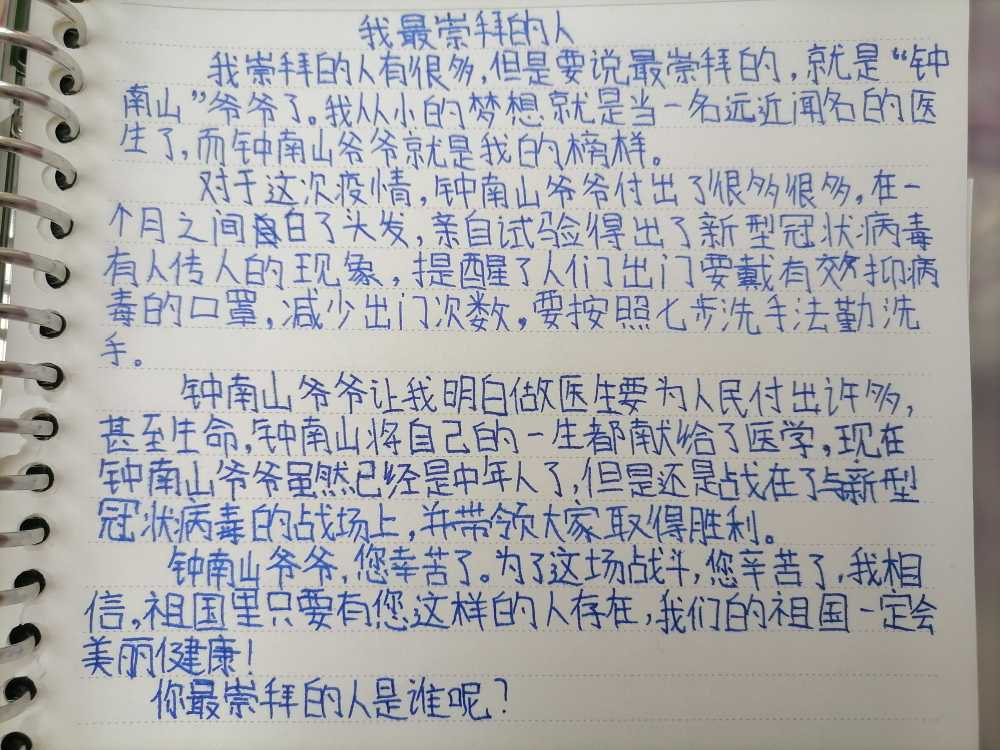 我最崇拜的人
我崇拜的人有很多,但是要说最崇拜的,就是“钟
南山”爷爷了。我从小的梦想就是当一名远近闻名的医
生了,而钟南山爷爷就是我的榜样。
对于这次疫情,钟南山爷爷付出了很多很多,在一
个月之间白了头发,亲自试验得出了新型冠状病毒
有人传人的现象,提醒了人们出门要戴有效抑病
毒的口罩,减少出门次数,要按照七步洗手法勤洗
手。
钟南山爷爷让我明白做医生要为人民付出许多,
甚至生命,钟南山将自己的一生都献给了医学,现在
钟南山爷爷虽然已经是中年人了,但是还是战在了与新型
冠状病毒的战场上,并带领大家取得胜利。
钟南山爷爷,您幸苦了。为了这场战斗,您辛苦了,我相
信,祖国里只要有您这样的人存在,我们的祖国一定会
美丽健康!
你最崇拜的人是谁呢?